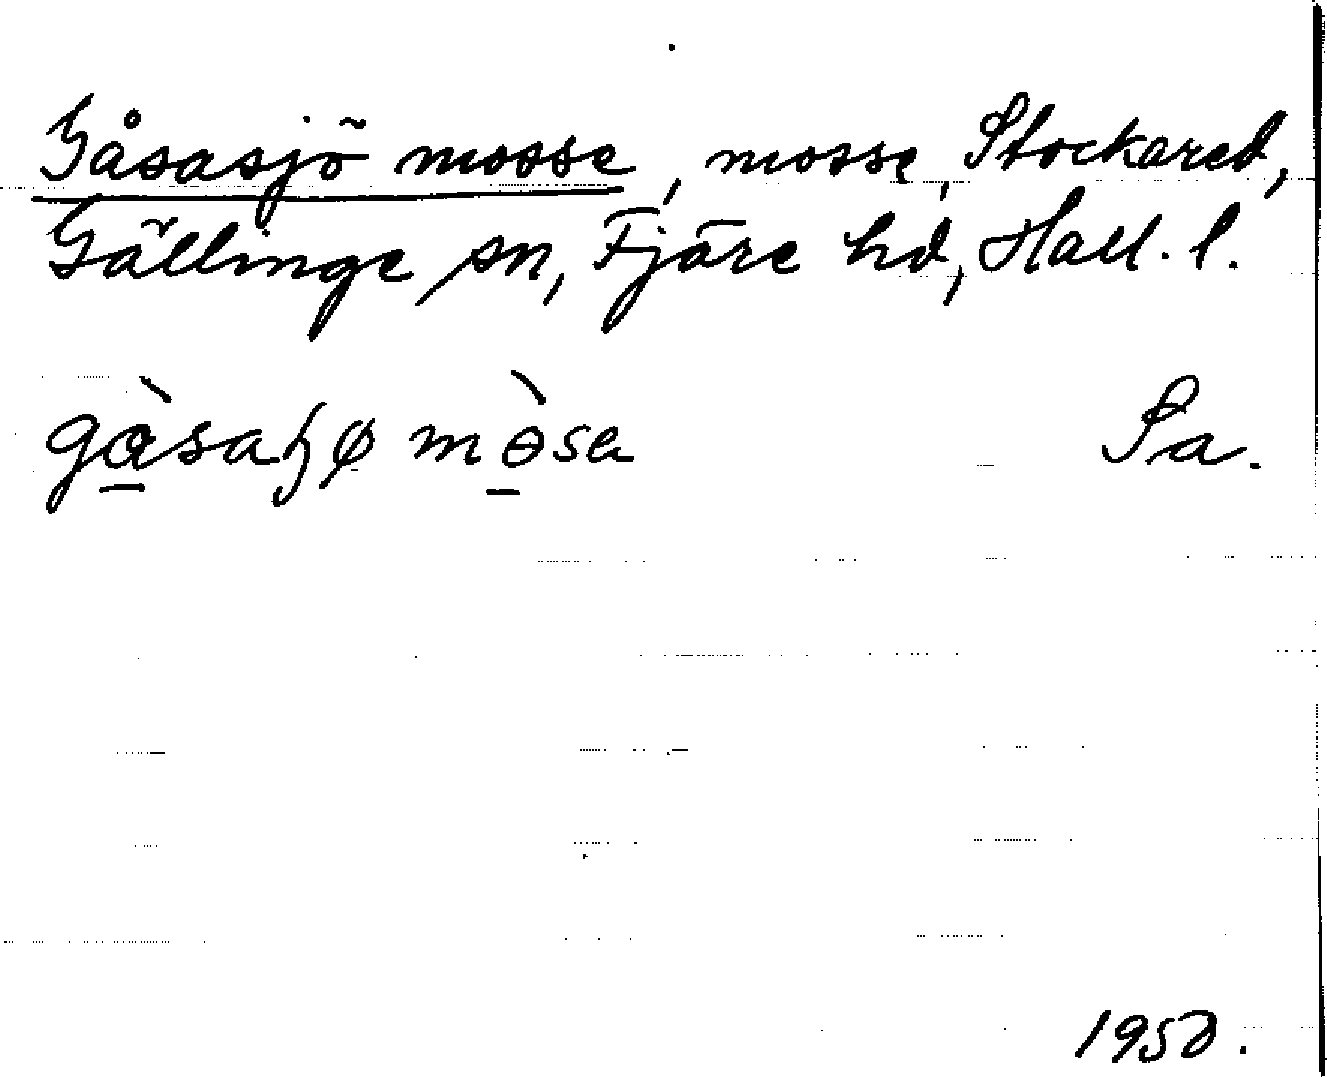 Gåsasjö mosse, mosse, Stockared,
Gällinge sn, Fjäre hd, Hall. l.
Sa.
1950.